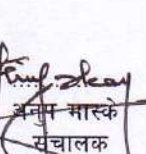 अनुप मास्के
संचालक